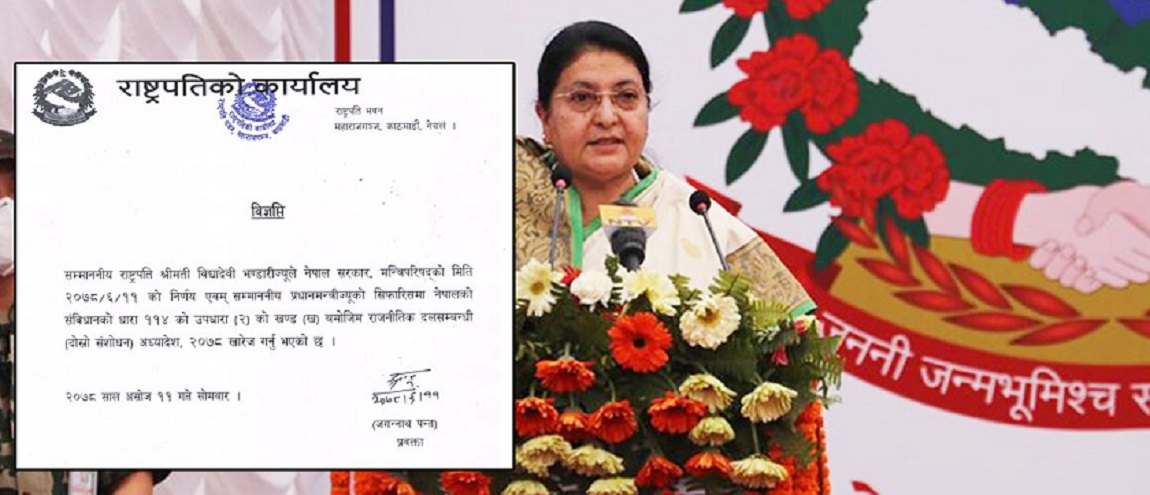 राष्ट्रपतिको कार्यालय
राष्ट्रपति भवन
महाराजगञ्ज, काठमाडौं, नेपाल ।
विज्ञप्ति
सम्माननीय राष्ट्रपति श्रीमती विद्यादेवी भण्डारीज्यूले नेपाल सरकार, मन्त्रिपरिषद्को मिति
२०७८/६/११ को निर्णय एवम् सम्माननीय प्रधानमन्त्रीज्यूको सिफारिसमा नेपालको
संविधानको धारा ११४ को उपधारा (२) को खण्ड (ख) बमोजिम राजनीतिक दलसम्बन्धी
(दोस्रो संशोधन) अध्यादेश, २०७८ खारेज गर्नु भएको छ ।
२०७८ साल असोज ११ गते सोमबार ।
२०७८।६।११
(जगन्नाथ पन्त)
प्रवक्ता
जननी जन्मभूमिश्च